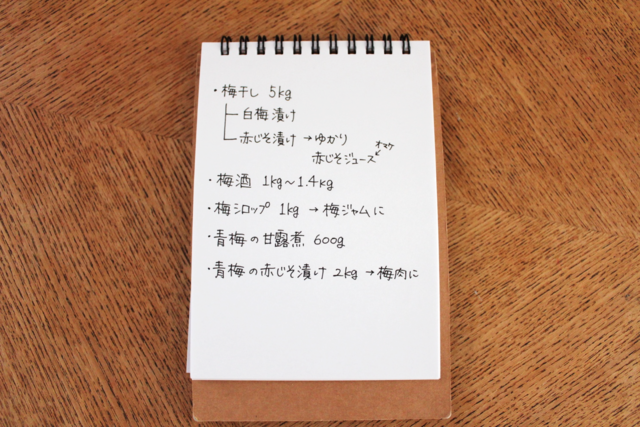 ・梅干し 5kg
白梅漬け
赤じそ漬け → ゆかり
オマケ
赤じそジュース
・梅酒 1kg～1.4kg
・梅シロップ 1kg → 梅ジャムに
・青梅の甘露煮 600g
・青梅の赤じそ漬け 2kg → 梅肉に